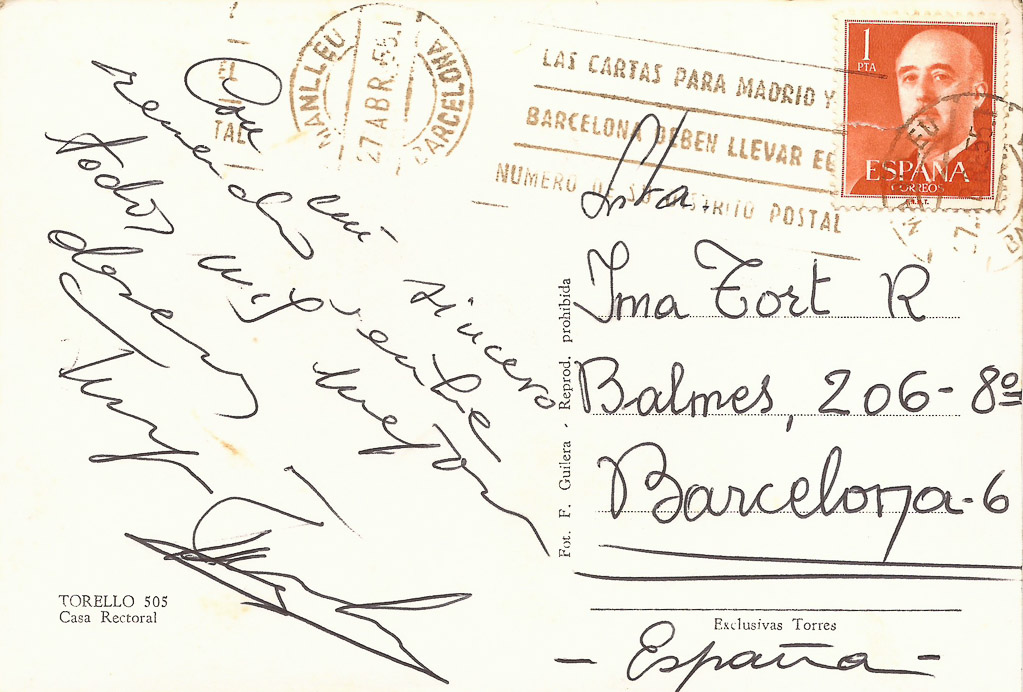 Con mi sincero
recuerdo
todos mis mejores
deseos
TORELLO 505
Casa Rectoral
Fot. F. Guilera - Reprod. prohibida
MANLLEU
27 ABR. 55
BARCELONA
LAS CARTAS PARA MADRID Y
BARCELONA DEBEN LLEVAR EL
NUMERO DE SU DISTRITO POSTAL
1
PTA
ESPAÑA
CORREOS
Srta.
Ima Tort R
Balmes, 206-8º
Barcelona-6
Exclusivas Torres
- España -